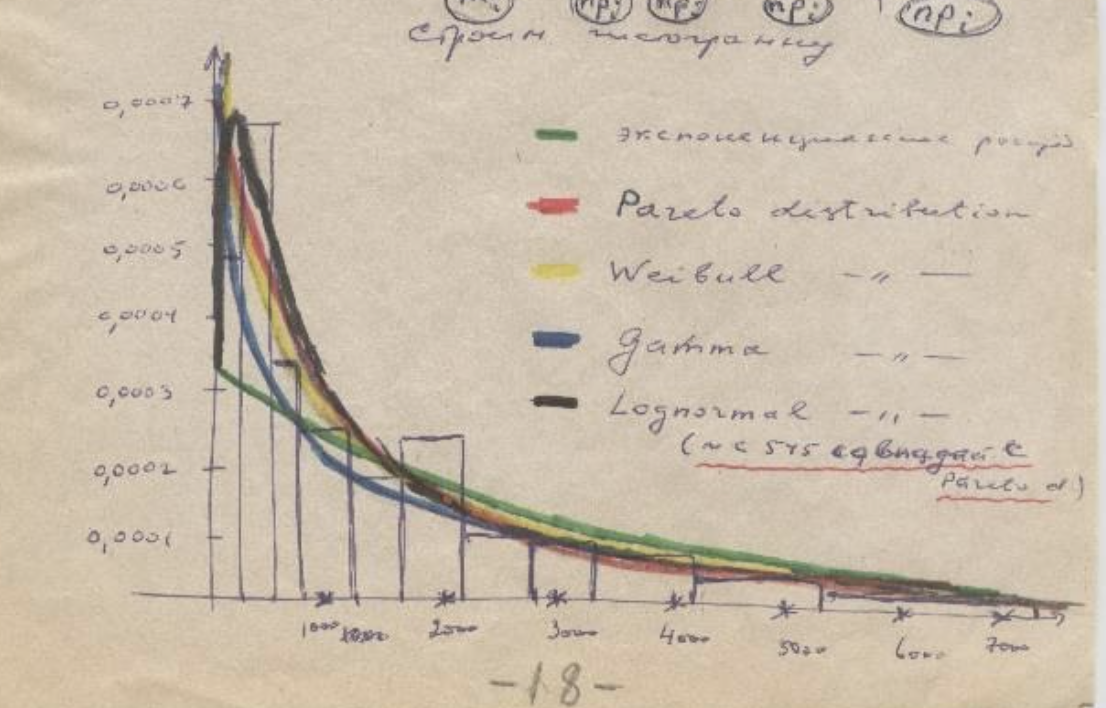 npᵢ npᵢ npᵢ npᵢ
Строим гистограмму
0,0007
0,0006
0,0005
0,0004
0,0003
0,0002
0,0001
экспоненциальное
Pareto distribution
Weibull -„-
Gamma -„-
Lognormal -„-
(~ с 575
Pareto d.)
1000 2000 3000 4000 5000 6000 7000
-18-